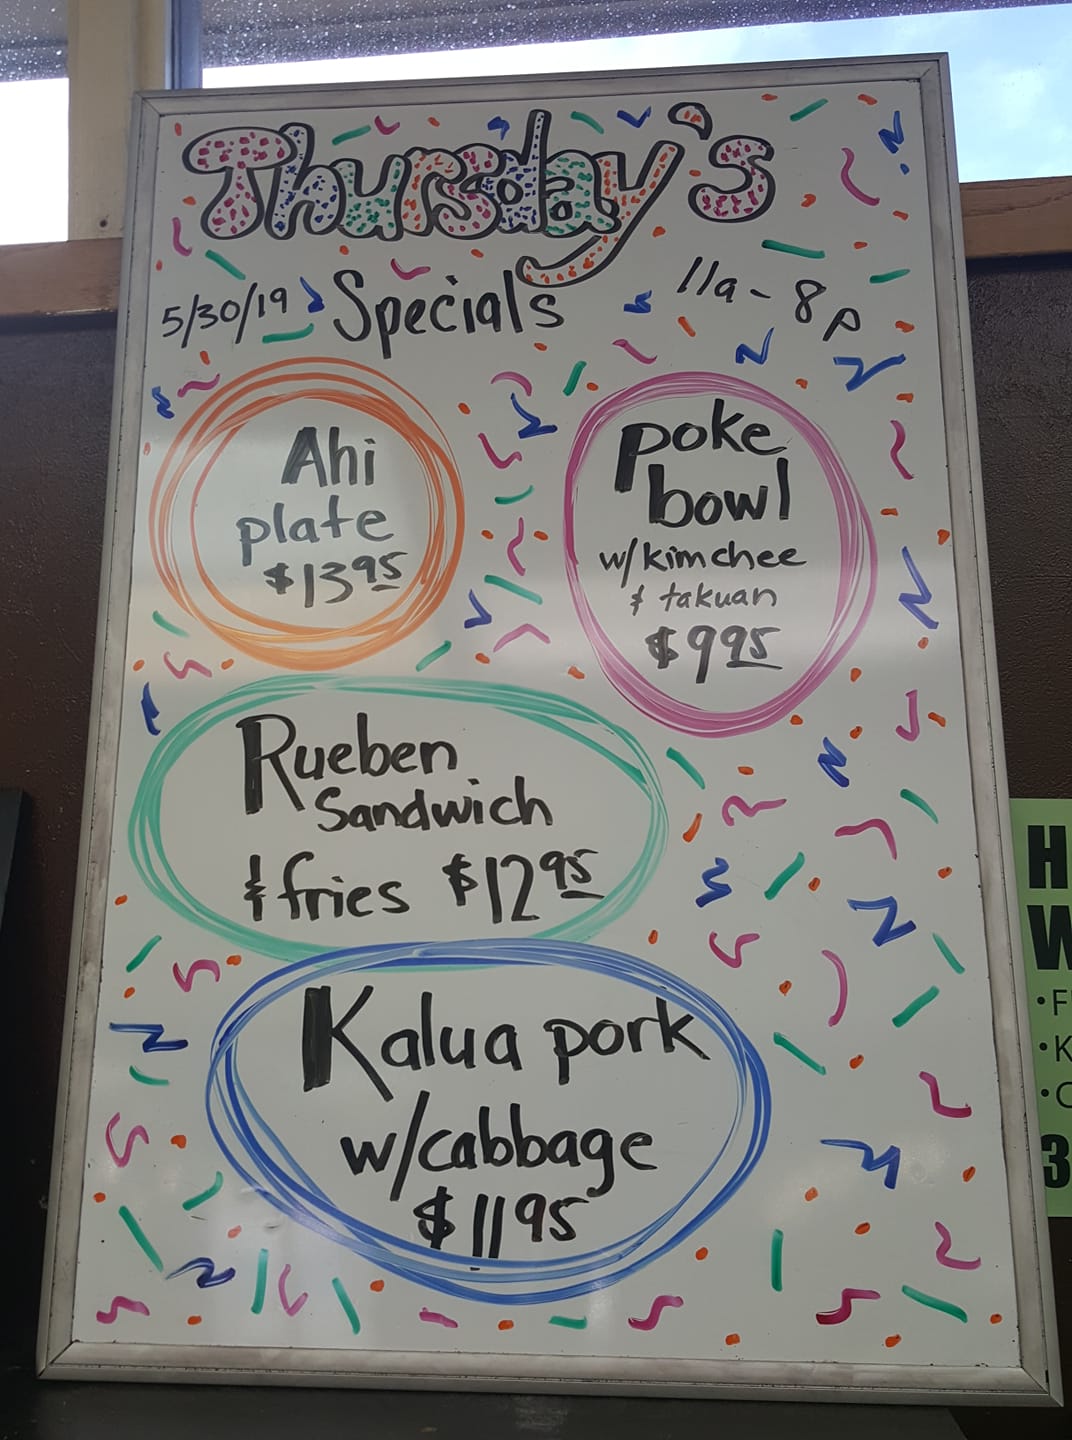 Thursday's
5/30/19 Specials 11a - 8p
Ahi
plate
$13.95
poke
bowl
w/kimchee
& takuan
$9.95
Rueben
Sandwich
& fries $12.95
Kalua pork
w/cabbage
$11.95
H
W
• F
• K
•
3